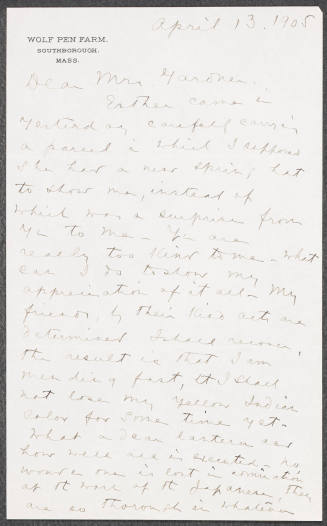 April 13. 1905
WOLF PEN FARM.
SOUTHBOROUGH,
MASS.
Dear Mrs. Gardner.
Esther came in
yesterday carefully carrying
a parcel in which I supposed
she had a new spring hat
to show me, instead of
which was a surprise from
you to me - You are
really too kind to me - What
can I do to show my
appreciation of it all -
friends, by their kind acts are
determined I shall recover,
the result is that I am
mending fast, tt I shall
not lose my yellow Indian
color for some time yet -
What a dear lantern and
how well all is executed - no
wonder one is lost in admiration
at the work of the Japanese, they
are so thorough in whatever